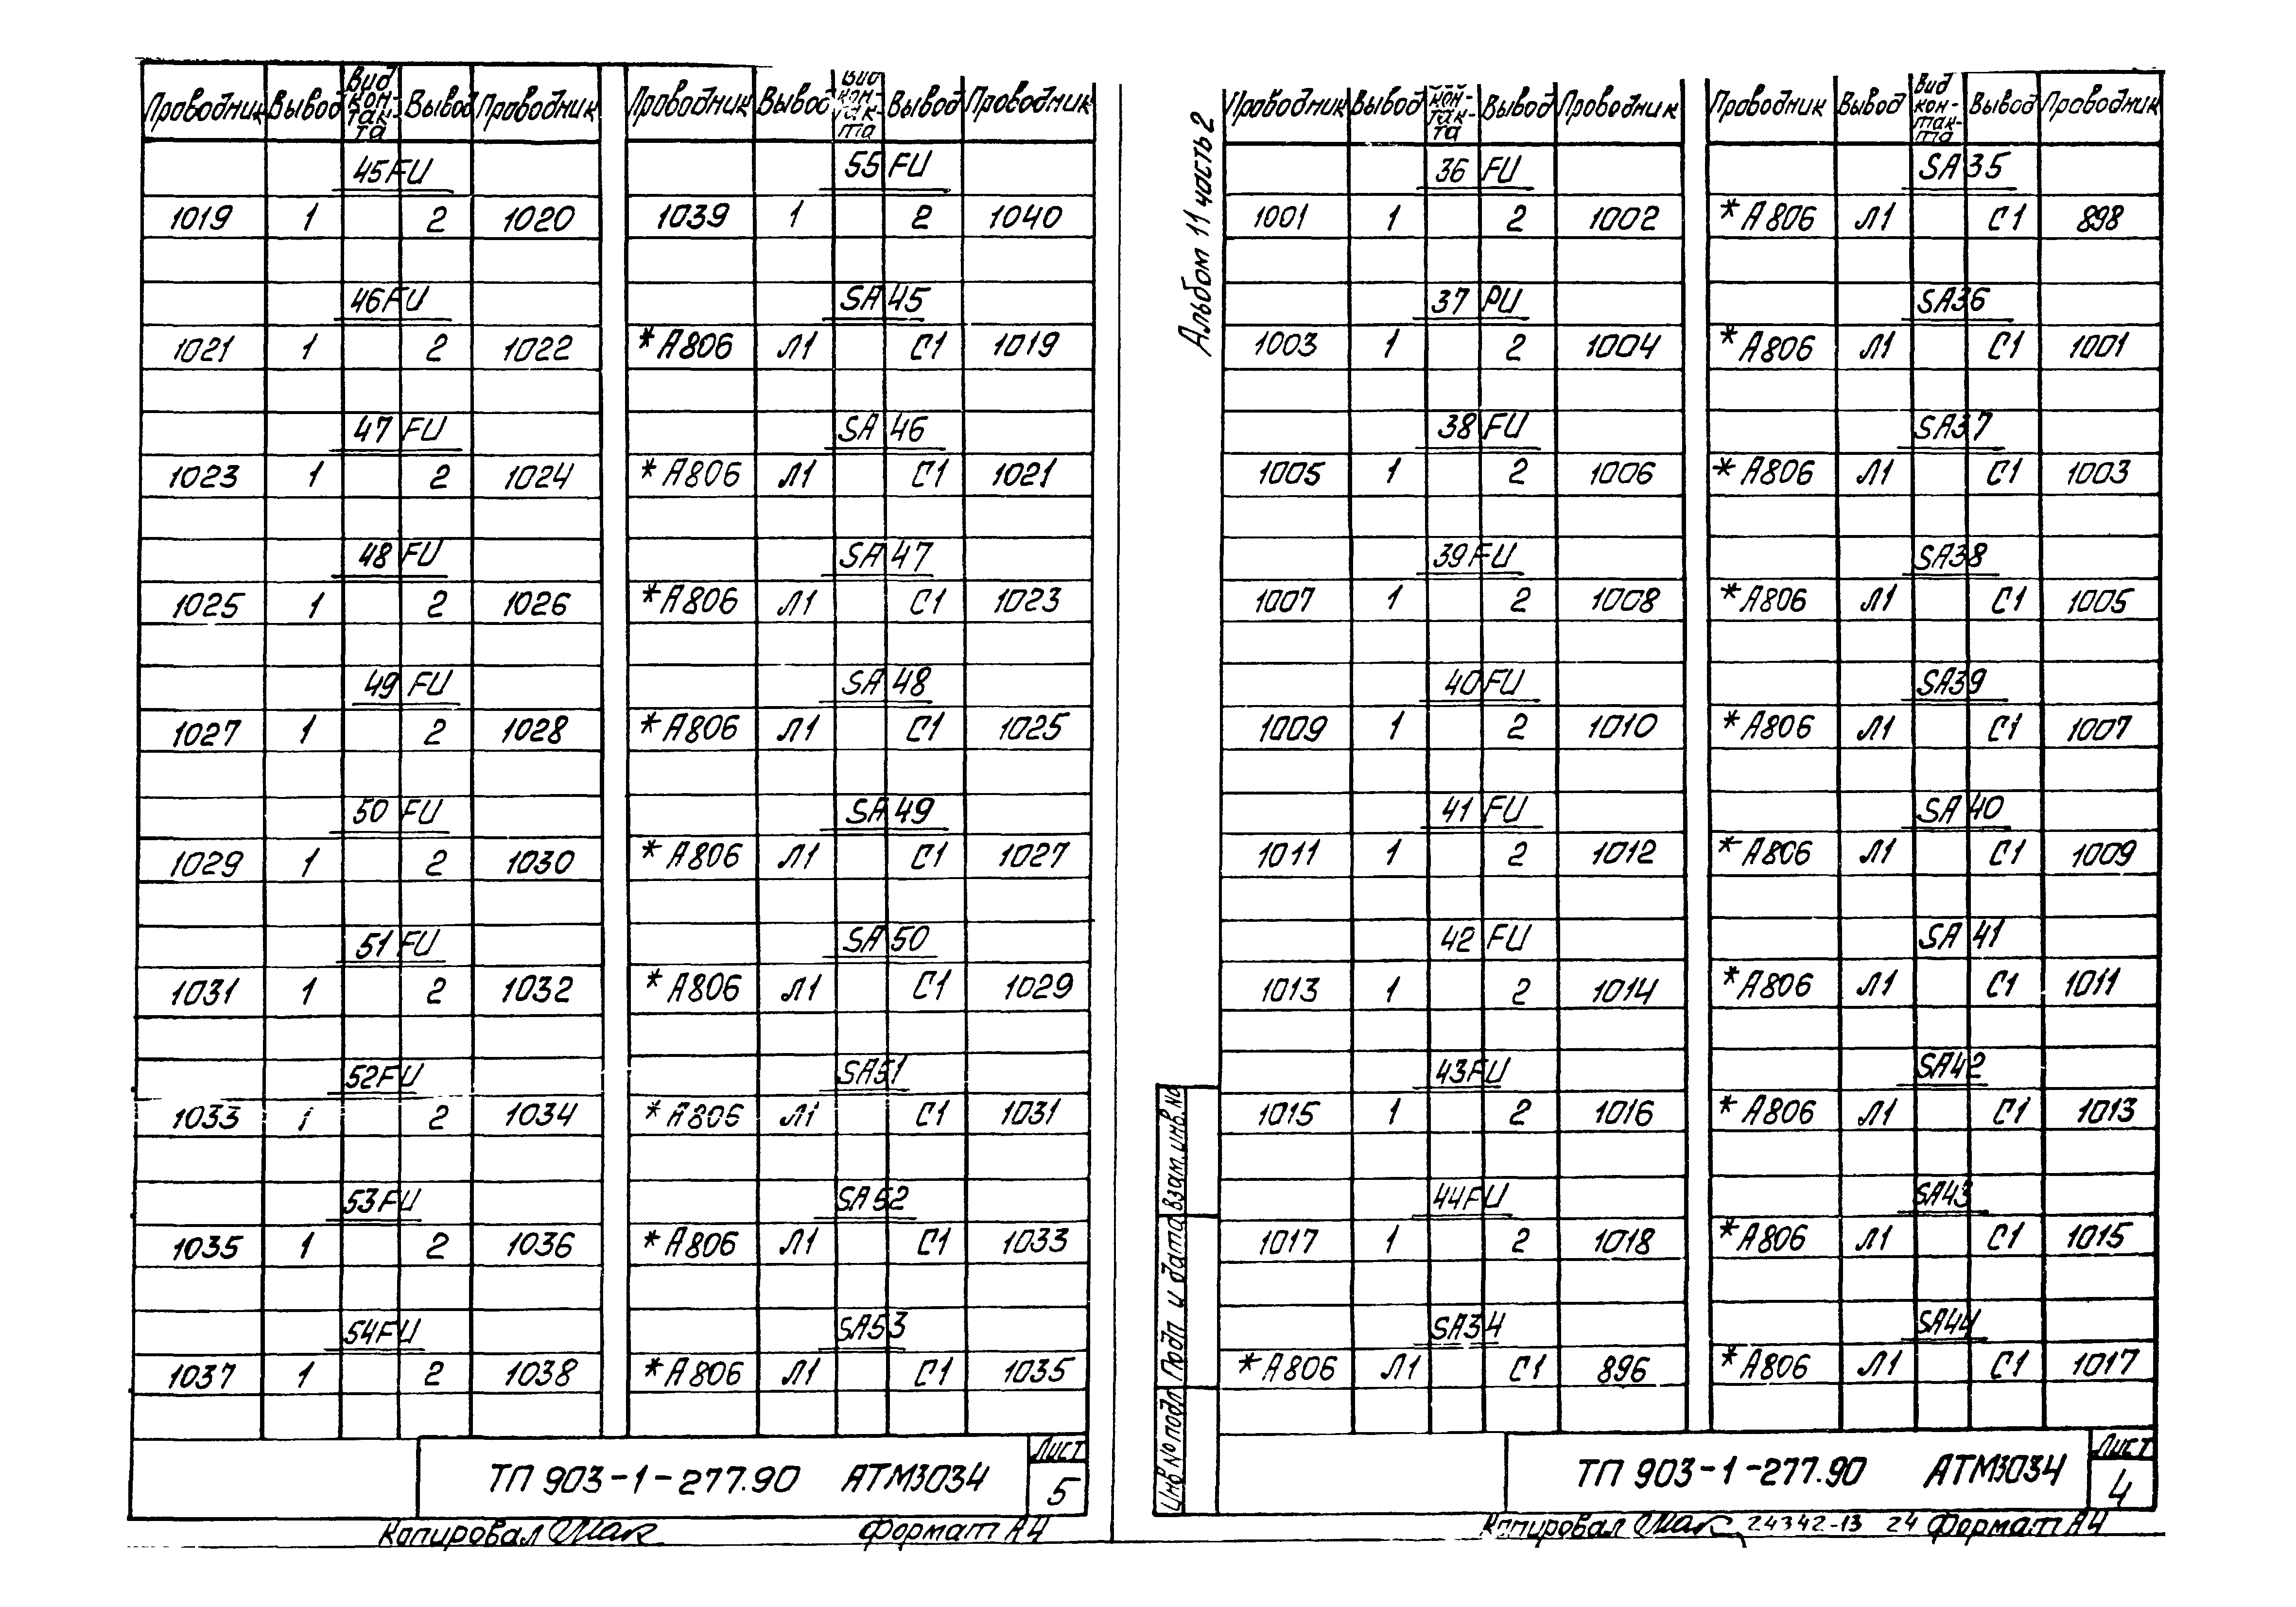 Проводник Вывод Вид кон-так-та Вывод Проводник
45FU
1019 1 2 1020
46FU
1021 1 2 1022
47 FU
1023 1 2 1024
48 FU
1025 1 2 1026
49 FU
1027 1 2 1028
50 FU
1029 1 2 1030
51 FU
1031 1 2 1032
52FU
1033 1 2 1034
53FU
1035 1 2 1036
54FU
1037 1 2 1038
Проводник Вывод Вид кон-так-та Вывод Проводник
55 FU
1039 1 2 1040
SA 45
*А806 Л1 С1 1019
SA 46
*А806 Л1 С1 1021
SA 47
*А806 Л1 С1 1023
SA 48
*А806 Л1 С1 1025
SA 49
*А806 Л1 С1 1027
SA 50
*А806 Л1 С1 1029
SA51
*А806 Л1 С1 1031
SA52
*А806 Л1 С1 1033
SA53
*А806 Л1 С1 1035
ТП 903-1-277.90 АТМ3034
Лист
5
Копировал Формат А4
Альбом 11 часть 2
Проводник Вывод кон-так-та Вывод Проводник
36 FU
1001 1 2 1002
37 PU
1003 1 2 1004
38 FU
1005 1 2 1006
39FU
1007 1 2 1008
40FU
1009 1 2 1010
41 FU
1011 1 2 1012
42 FU
1013 1 2 1014
43FU
1015 1 2 1016
44FU
1017 1 2 1018
SA34
*А806 Л1 С1 896
Проводник Вывод Вид кон-так-та Вывод Проводник
SA35
*А806 Л1 С1 898
SA36
*А806 Л1 С1 1001
SA37
*А806 Л1 С1 1003
SA38
*А806 Л1 С1 1005
SA39
*А806 Л1 С1 1007
SA 40
*А806 Л1 С1 1009
SA 41
*А806 Л1 С1 1011
SA42
*А806 Л1 С1 1013
SA43
*А806 Л1 С1 1015
SA44
*А806 Л1 С1 1017
Взам. инв. №
Подп и дата
Инв № подл
ТП 903-1-277.90 АТМ3034
Лист
4
Копировал 24342-13 24 Формат А4